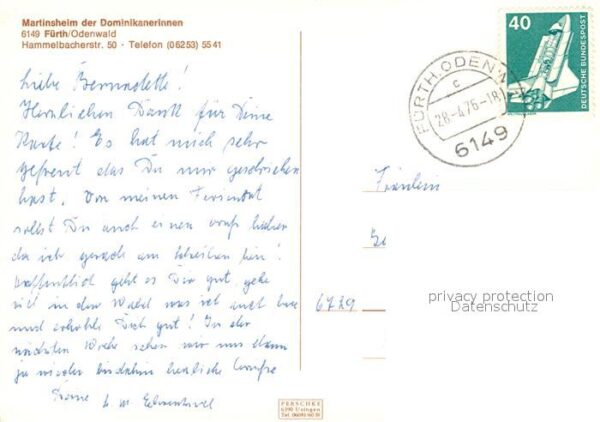 Martinsheim der Dominikanerinnen
6149 Fürth/Odenwald
Hammelbacherstr. 50 · Telefon (06253) 5541
40
DEUTSCHE BUNDESPOST
FÜRTH, ODENW
c
28.-4.76-18
6149
Liebe Bernadette!
Herzlichen Dank für Deine
Karte! Es hat mich sehr
gefreut das Du mir geschrieben
hast. Von meinen Ferienort
sollst Du auch einen
da ich gerade am schreiben bin!
Hoffentlich geht es Dir gut, gehe
viel in den Wald was ich auch tue
und erhohle Dich gut! In der
nächsten Woche sehen wir uns dann
ja wieder bis dahin herzliche Grüße
Deine
Fräulein
6729
privacy protection
Datenschutz
PERSCHKE
6390 Usingen